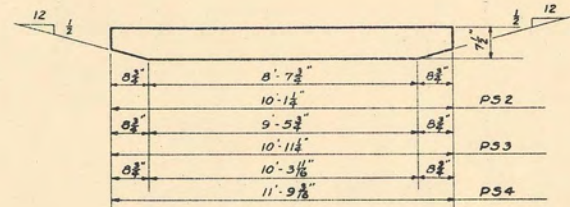 12 1/2 1/2 12
7 1/2"
8 3/4" 8'-7 3/4" 8 3/4"
10'-1 1/4" PS2
8 3/4" 9'-5 3/4" 8 3/4"
10'-11 1/4" PS3
8 3/4" 10'-3 11/16" 8 3/4"
11'-9 3/16" PS4